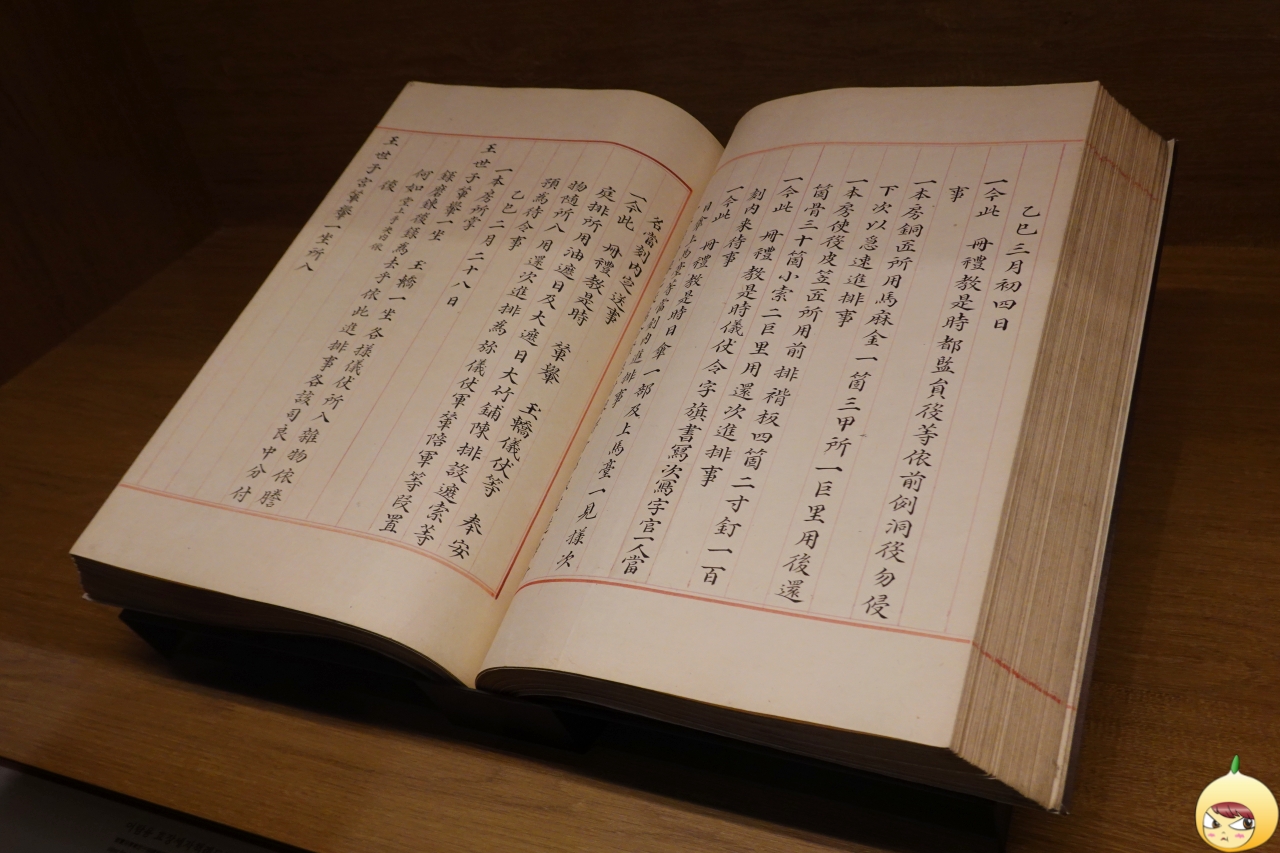 乙巳三月初四日
一今此 冊禮教是時都監員役等依前例洞役勿侵
事
一本房銅匠所用馬麻金一箇三甲所一巨里用後還
下次以急速進排事
一本房使役皮笠匠所用前排楷板四箇二寸釘一百
箇骨三十箇小索二巨里用還次進排事
一今此 冊禮教是時儀仗令字旗書寫次寫字官一人當
刻內来待事
一今此 冊禮教是時日傘一部及上馬臺一見樣次
名當刻內定送事
一今此 冊禮教是時 輦轝 玉轎儀仗等 奉安
庭排所用油遮日及大遮日大竹鋪陳排設遮索等
物随所入用還次進排為㫆儀仗軍輦陪軍等段置
預為待令事
乙巳二月二十八日
一本房所掌
王世子輦轝一坐 玉轎一坐各樣儀仗所入雜物依謄
錄磨鍊後錄為去乎依此進排事各該司良中分付
何如堂上手決內依
後
王世子宮輦轝一坐所入